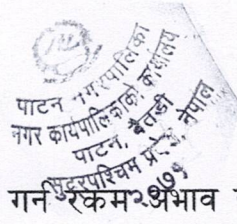 पाटन नगरपालिका
नगर कार्यपालिकाको कार्यालय
पाटन, बैतडी
सुदूरपश्चिम प्रदेश, नेपाल
२०७५
गर्न रकम अभाव